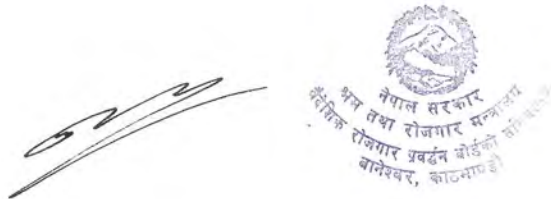 नेपाल सरकार
श्रम तथा रोजगार मन्त्रालय
वैदेशिक रोजगार प्रवर्द्धन बोर्डको
बानेश्वर, काठमाण्डौ